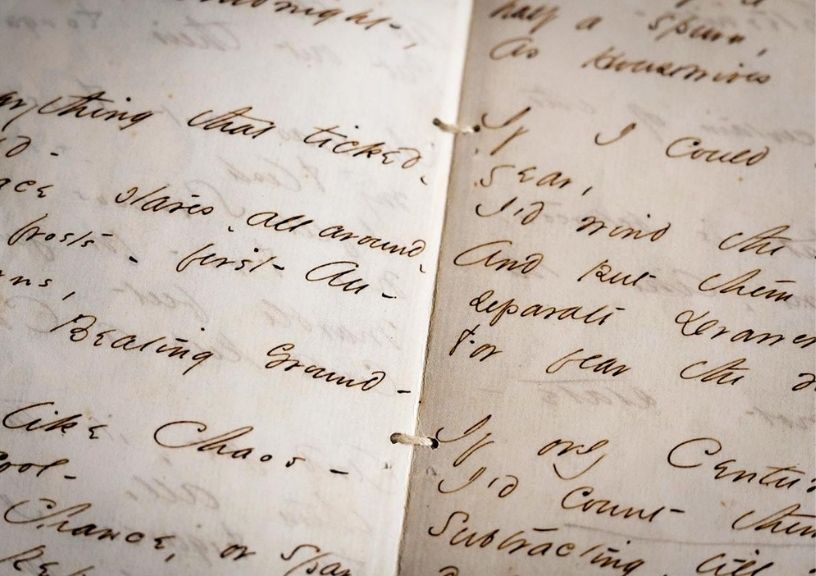 rything that ticked -
ace stares - all around -
frosts - first Au -
ns,
Beating Ground -
like Chaos -
ool -
Chance, or Spar
half a Spurn,
As Housewives
If I could
year,
I'd wind the
And put them
separate Drawer
For fear the
If only Centu
I'd count them
Subtracting, till